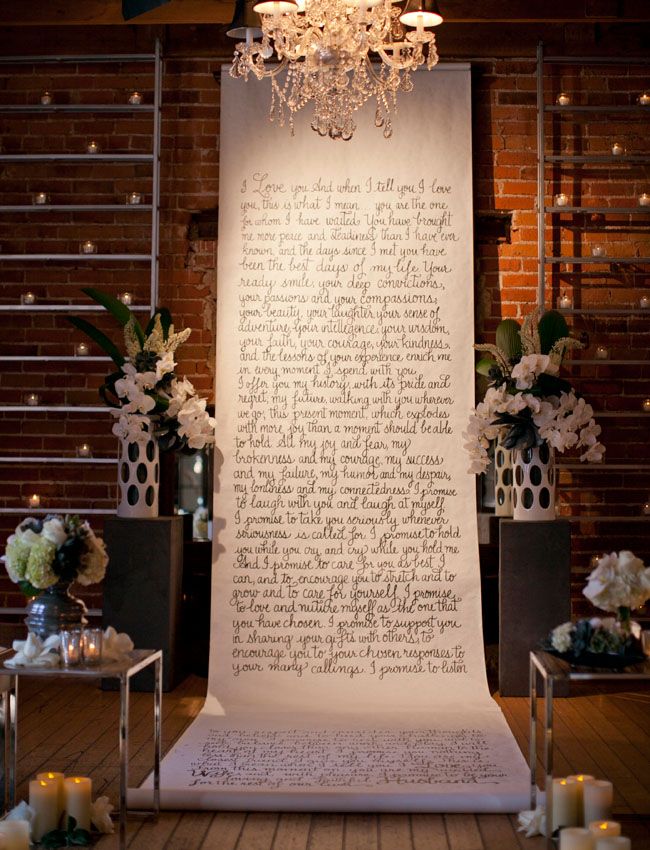 I Love you. And when I tell you I love
you, this is what I mean... you are the one
for whom I have waited. You have brought
me more peace and steadiness than I have ever
known, and the days since I met you have
been the best days of my life. Your
ready smile, your deep convictions,
your passions and your compassions;
your beauty, your laughter, your sense of
adventure, your intellegence, your wisdom,
your faith, your courage, your kindness;
and the lessons of your experience enrich me
in every moment I spend with you.
I offer you my history, with its pride and
regret, my future, walking with you wherever
we go; this present moment, which explodes
with more joy than a moment should be able
to hold. All my joy and fear, my
brokenness and my courage, my success
and my failure, my humor and my despair,
my loneliness and my connectedness. I promise
to laugh with you and laugh at myself.
I promise to take you seriously whenever
seriousness is called for. I promise to hold
you while you cry, and cry while you hold me.
And I promise to care for you as best I
can, and to encourage you to stretch and to
grow and to care for yourself. I promise
to love and nuture myself as the one that
you have chosen. I promise to support you
in sharing your gifts with others, to
encourage you to your chosen responses to
your many callings. I promise to listen
Wife
to be your
for the rest of our lives. Husband